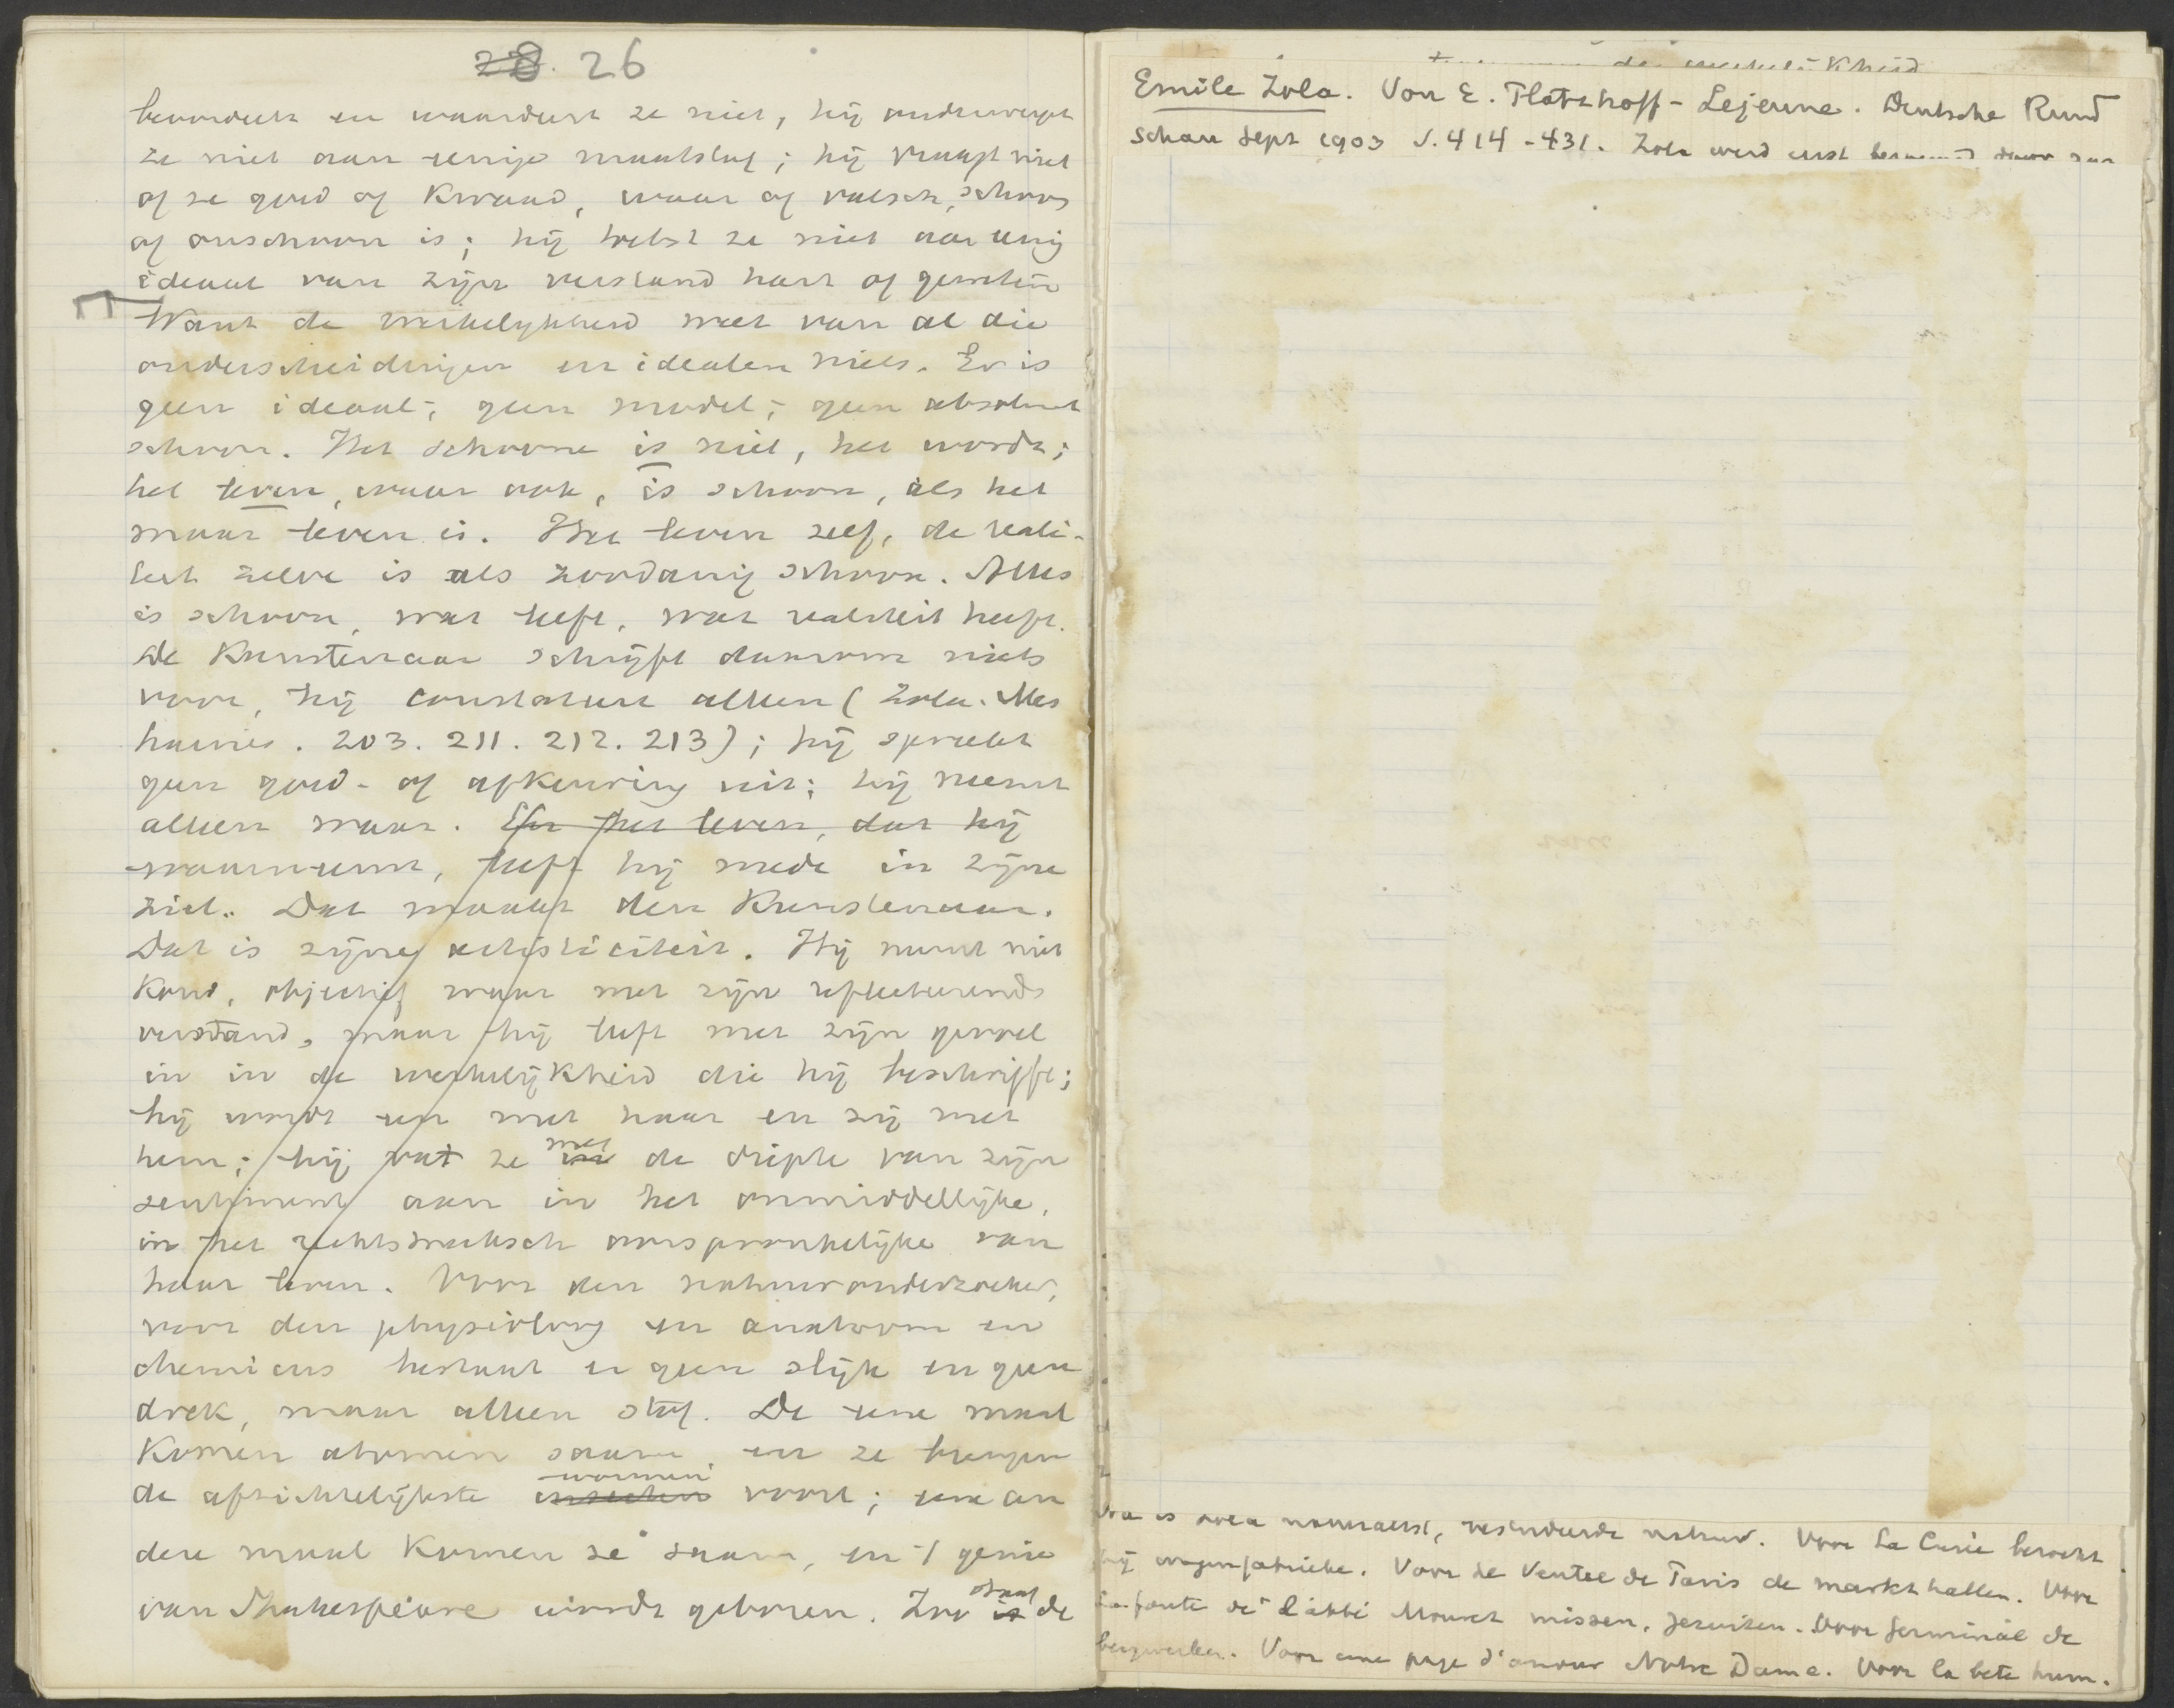 28. 26
beoordeelt en waardeert ze niet, hij onderwerpt
ze niet aan eenige maatstaf; hij vraagt niet
of ze goed of kwaad, waar of valsch, schoon
of onschoon is; hij toetst ze niet aan eenig
ideaal van zijn verstand hart of geweten
Want de werkelijkheid weet van al die
onderscheidingen en idealen niets. Er is
geen ideaal, geen model, geen absoluut
schoon. Het schoone is niet, het wordt;
het leven, waar ook, is schoon, als het
maar leven is. Het leven zelf, de reali-
teit zelve is als zoodanig schoon. Alles
is schoon, wat leeft, wat realiteit heeft.
De Kunstenaar schrijft daarom niets
voor, hij constateert alleen (Zola. Mes
haines. 203. 211. 212. 213); hij spreekt
geen goed- of afkeuring uit; hij neemt
alleen waar. En het leven, dat hij
waarneemt, leeft hij mede in zijne
ziel. Dat maakt den Kunstenaar.
Dat is zijne artisticiteit. Hij neemt niet
koud, objectief waar met zijn reflecteerende
verstand, maar hij leeft met zijn gevoel
in in de werkelijkheid die hij beschrijft;
hij wordt een met haar en zij met
hem; hij vat ze in met de diepte van zijn
sentiment aan in het onmiddellijke,
in het rechtstreeksch oorspronkelijke van
haar leven. Voor den natuuronderzoeker,
voor den physioloog en anatoom en
chemicus bestaat er geen slijk en geen
drek, maar alleen stof. De eene maal
komen atomen saam en ze brengen
de afzichtelijkste insecten wormen voort; eene an
dere maal komen ze saam, en 't genie
van Shakespeare wordt geboren. Zoo is staat de
Emile Zola. Von E. Platzhoff-Lejeune. Deutsche Rund
schau Sept 1903 S. 414-431. Zola werd eerst beroemd door zijn
is naturalist, bestudeerde natuur. Voor La Curie bezocht
hij wagenfabrieken. Voor Le Ventre de Paris de markthallen. Voor
La faute de l'abbé Mouret missen, jezuiten. Voor Germinal de
bergwerken. Voor une page d'amour Notre Dame. Voor la bete hum.